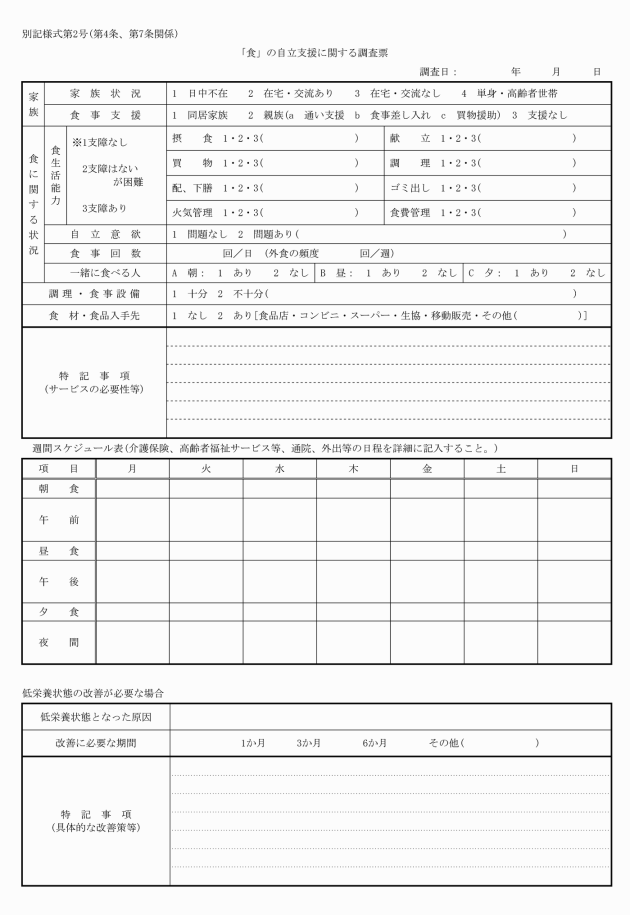 別記様式第2号(第4条、第7条関係)
「食」の自立支援に関する調査票
調査日： 年 月 日
家族
家 族 状 況 1 日中不在 2 在宅・交流あり 3 在宅・交流なし 4 単身・高齢者世帯
食 事 支 援 1 同居家族 2 親族(a 通い支援 b 食事差し入れ c 買物援助) 3 支援なし
食に関する状況
食生活能力
※1支障なし
2支障はない
が困難
3支障あり
摂 食 1・2・3( ) 献 立 1・2・3( )
買 物 1・2・3( ) 調 理 1・2・3( )
配、下膳 1・2・3( ) ゴミ出し 1・2・3( )
火気管理 1・2・3( ) 食費管理 1・2・3( )
自 立 意 欲 1 問題なし 2 問題あり( )
食 事 回 数 回／日 (外食の頻度 回／週)
一緒に食べる人 A 朝： 1 あり 2 なし B 昼： 1 あり 2 なし C 夕： 1 あり 2 なし
調 理 ・ 食 事 設 備 1 十分 2 不十分( )
食 材・食品入手先 1 なし 2 あり[食品店・コンビニ・スーパー・生協・移動販売・その他( )]
特 記 事 項
(サービスの必要性等)
週間スケジュール表(介護保険、高齢者福祉サービス等、通院、外出等の日程を詳細に記入すること。)
項 目 月 火 水 木 金 土 日
朝 食
午 前
昼 食
午 後
夕 食
夜 間
低栄養状態の改善が必要な場合
低栄養状態となった原因
改善に必要な期間 1か月 3か月 6か月 その他( )
特 記 事 項
(具体的な改善策等)